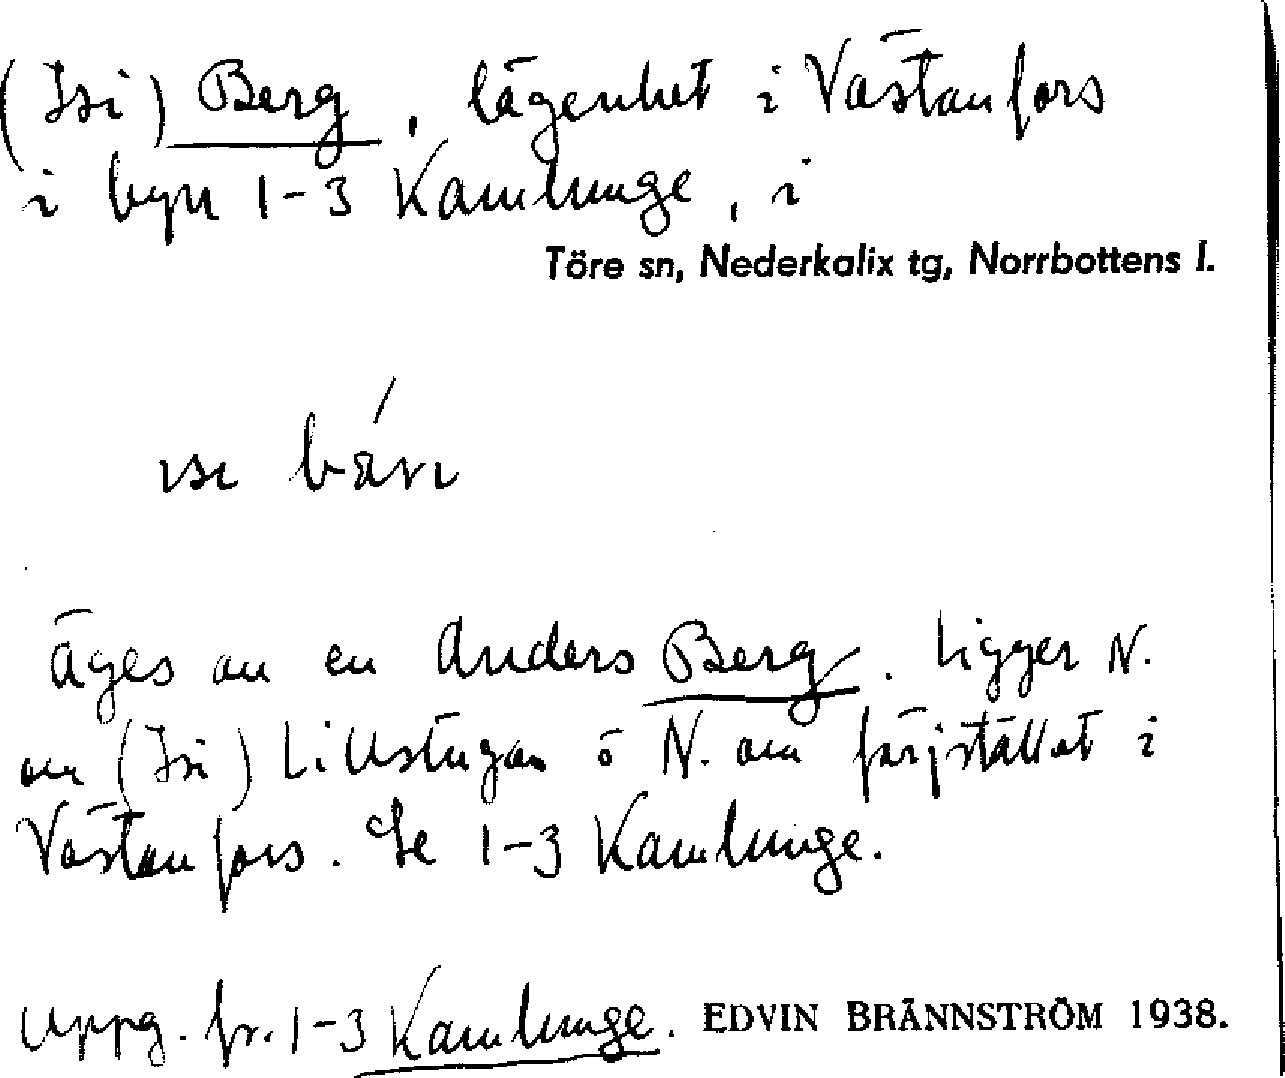 (Isi) Berg, lägenhet i Västanfors
i byn 1-3 Kamlunge, i
Töre sn, Nederkalix tg, Norrbottens l.
Äges av en Anders Berg. Ligger N.
om (Isi) Lillstugan o N. om färjstället i
Västanfors. Se 1-3 Kamlunge.
Uppg. fr. 1-3 Kamlunge. EDVIN BRÄNNSTRÖM 1938.